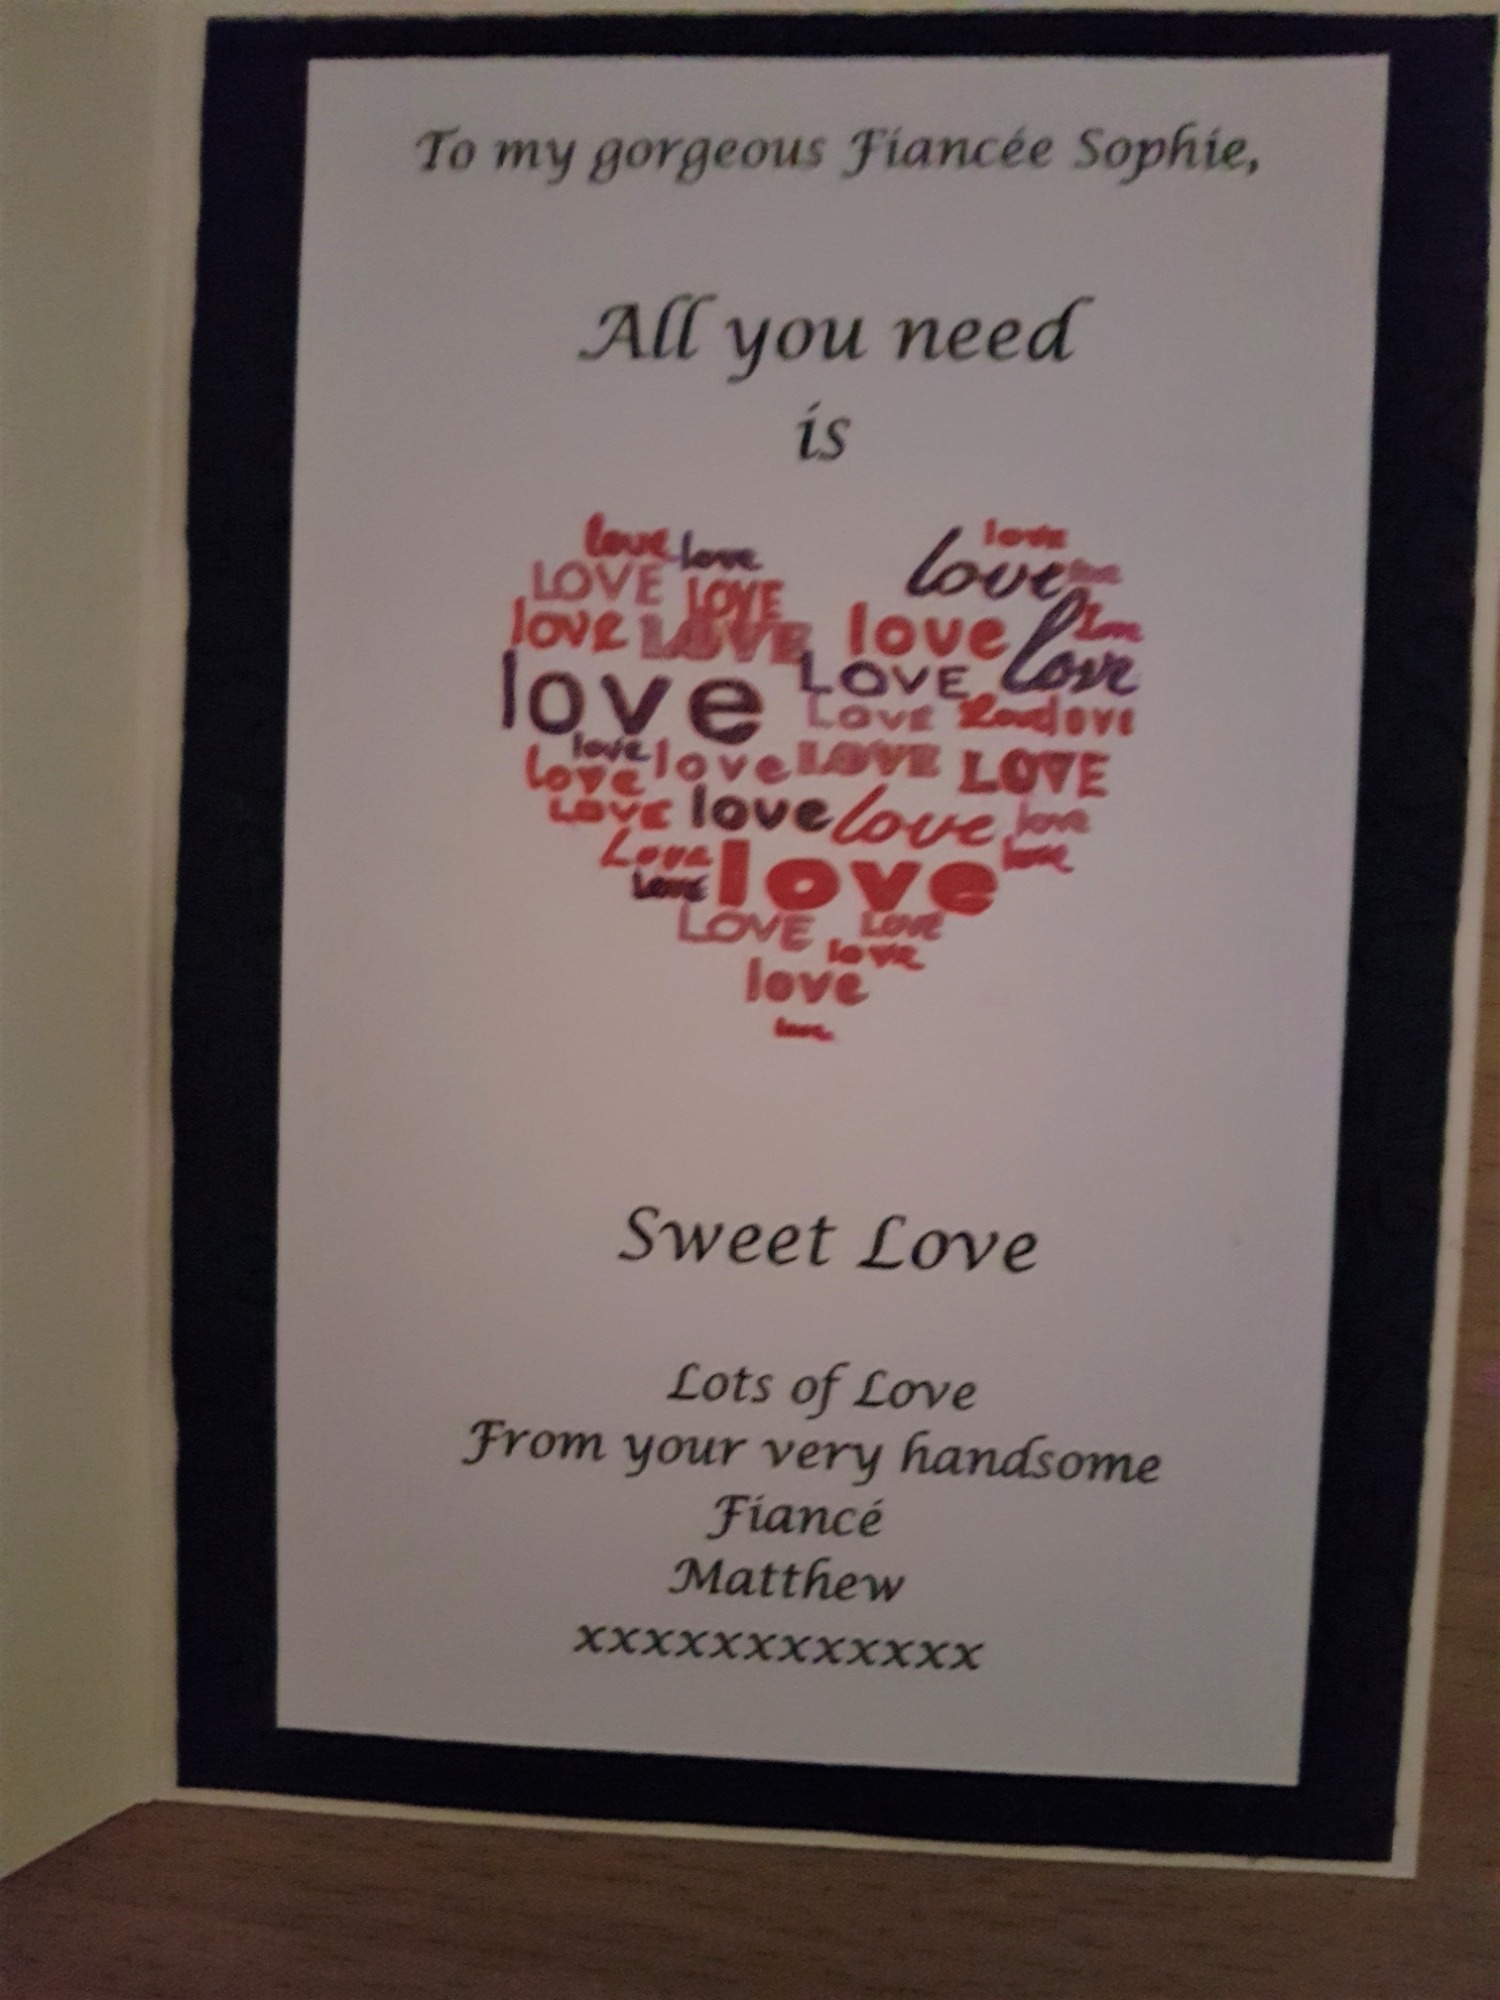 To my gorgeous Fiancée Sophie,
All you need
is
love love love
love
LOVE LOVE
love LOVE love love
love LOVE love
LOVE love
love
love love LOVE LOVE
LOVE love love love
Love love love
love
LOVE Love
love
love
love
Sweet Love
Lots of Love
From your very handsome
Fiancé
Matthew
xxxxxxxxxxxx